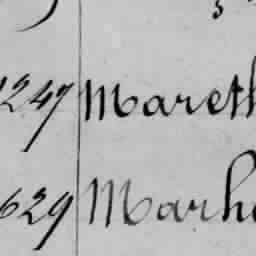 1247 Mareth
629 Marho